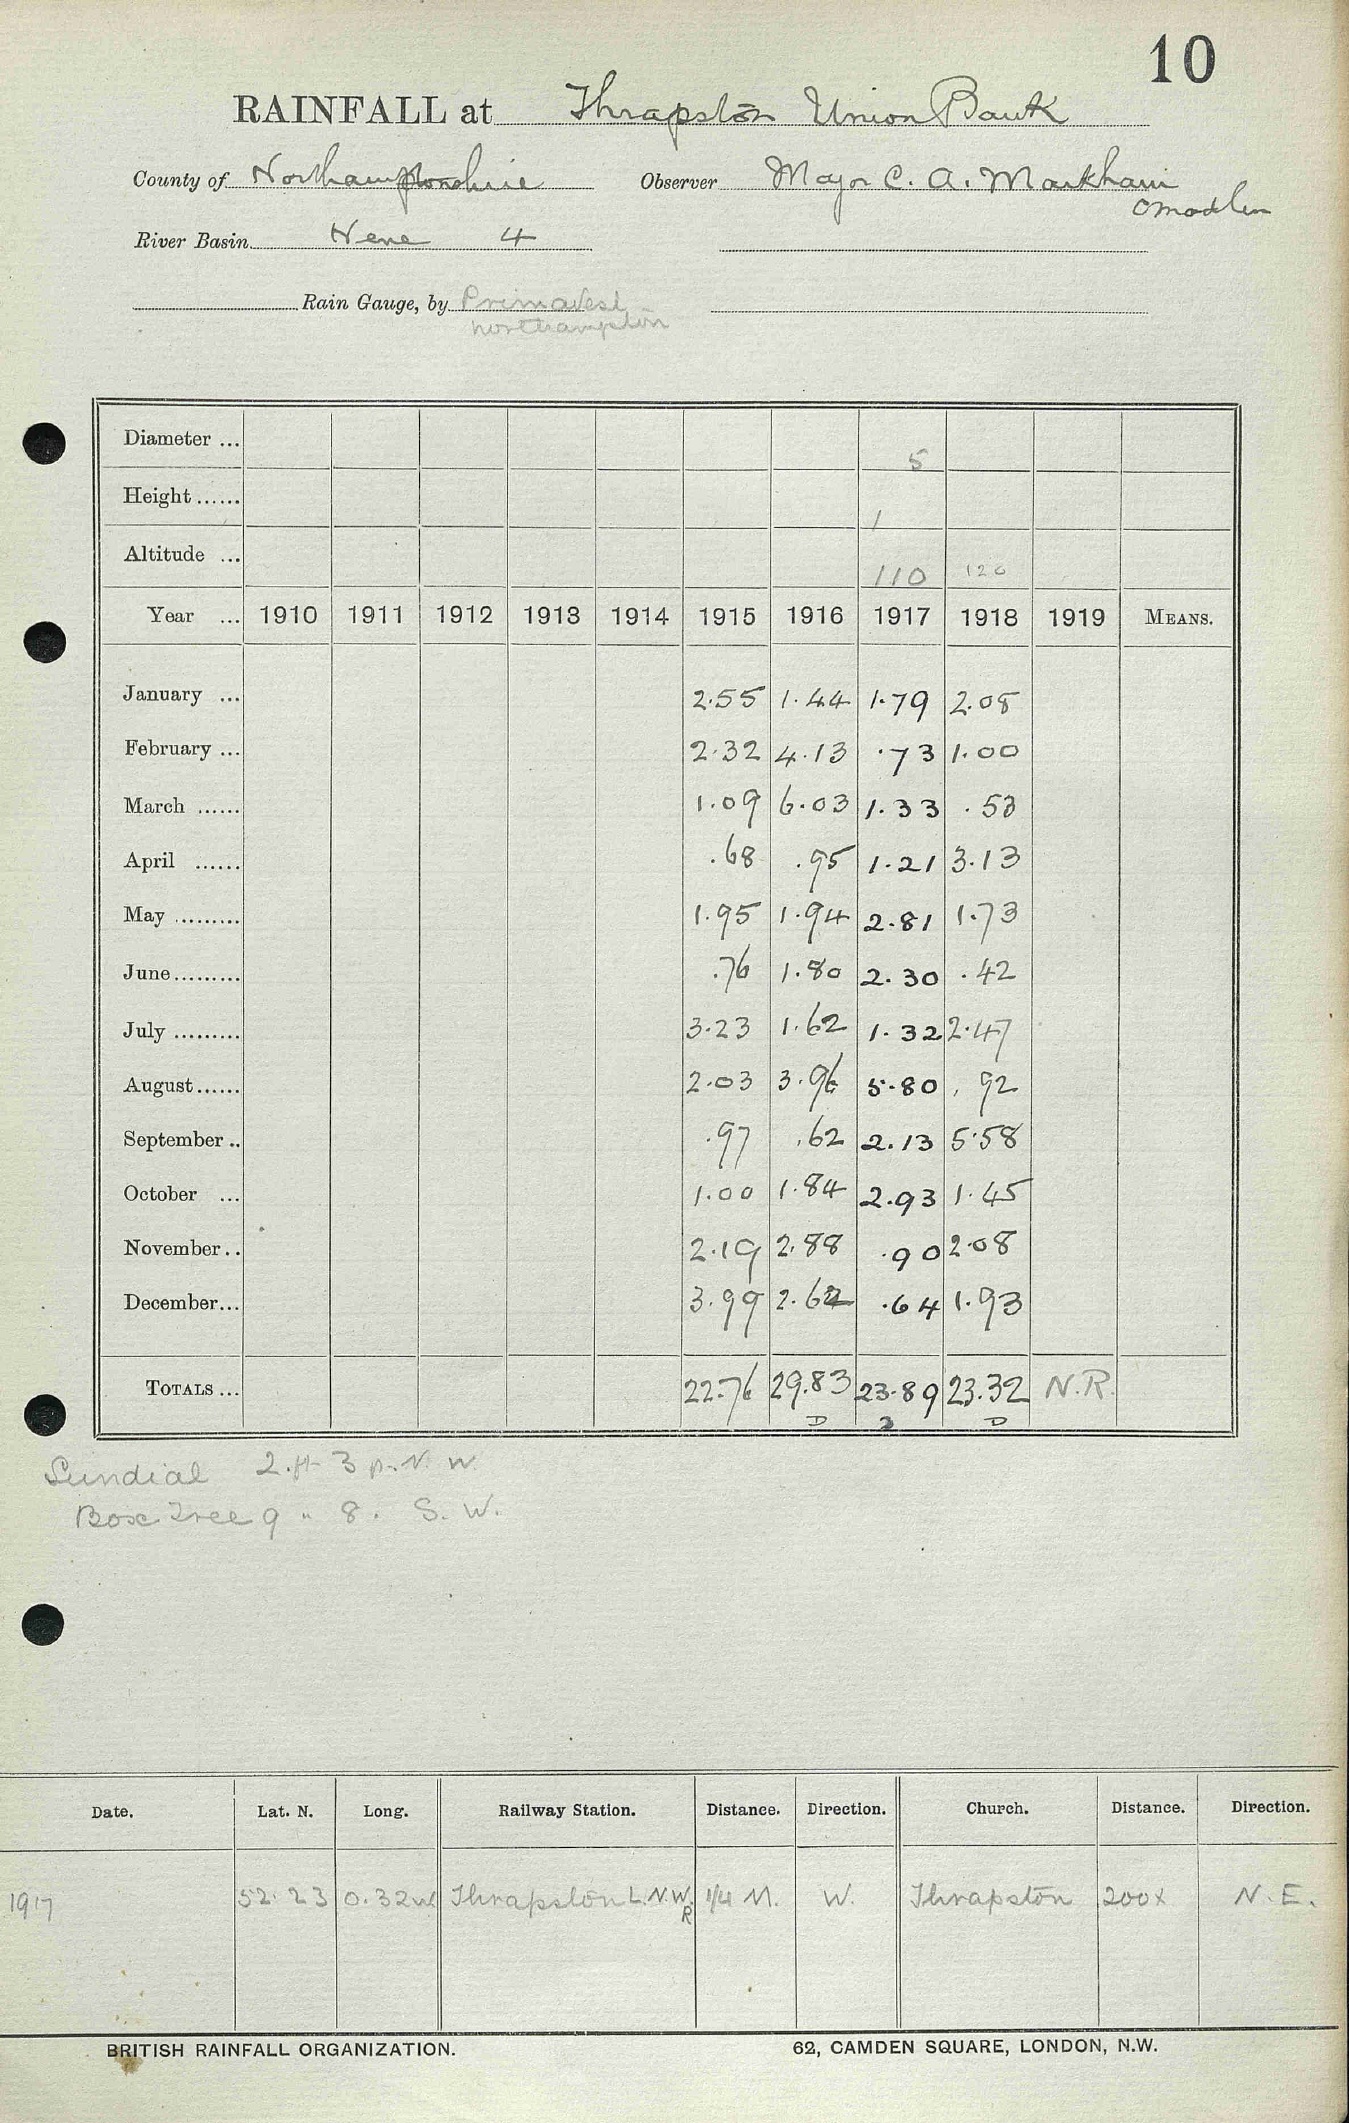 10
RAINFALL at Thrapston Union Bank
County of Northamptonshire Observer Major C. A. Markham
River Basin Nene 4
Rain Gauge, by
Northampton
Diameter ... 5
Height ...... 1
Altitude ... 110 120
Year ... 1910 1911 1912 1913 1914 1915 1916 1917 1918 1919 MEANS.
January ... 2.55 1.44 1.79 2.08
February ... 2.32 4.13 .73 1.00
March ...... 1.09 6.03 1.33 .53
April ...... .68 .95 1.21 3.13
May ......... 1.95 1.94 2.81 1.73
June ......... .76 1.80 2.30 .42
July ......... 3.23 1.62 1.32 2.47
August ...... 2.03 3.96 5.80 .92
September .. .97 .62 2.13 5.58
October ... 1.00 1.84 2.93 1.45
November .. 2.19 2.88 .90 2.08
December ... 3.99 2.62 .64 1.93
TOTALS ... 22.76 29.83 23.89 23.32 N.R.
D D D
Sundial 2 ft 3 N.W.
Box Tree 9 " 8. S.W.
Date. Lat. N. Long. Railway Station. Distance. Direction. Church. Distance. Direction.
1917 52.23 0.32 W Thrapston L.N.W.R 1/4 M. W. Thrapston 200x N.E.
BRITISH RAINFALL ORGANIZATION. 62, CAMDEN SQUARE, LONDON, N.W.